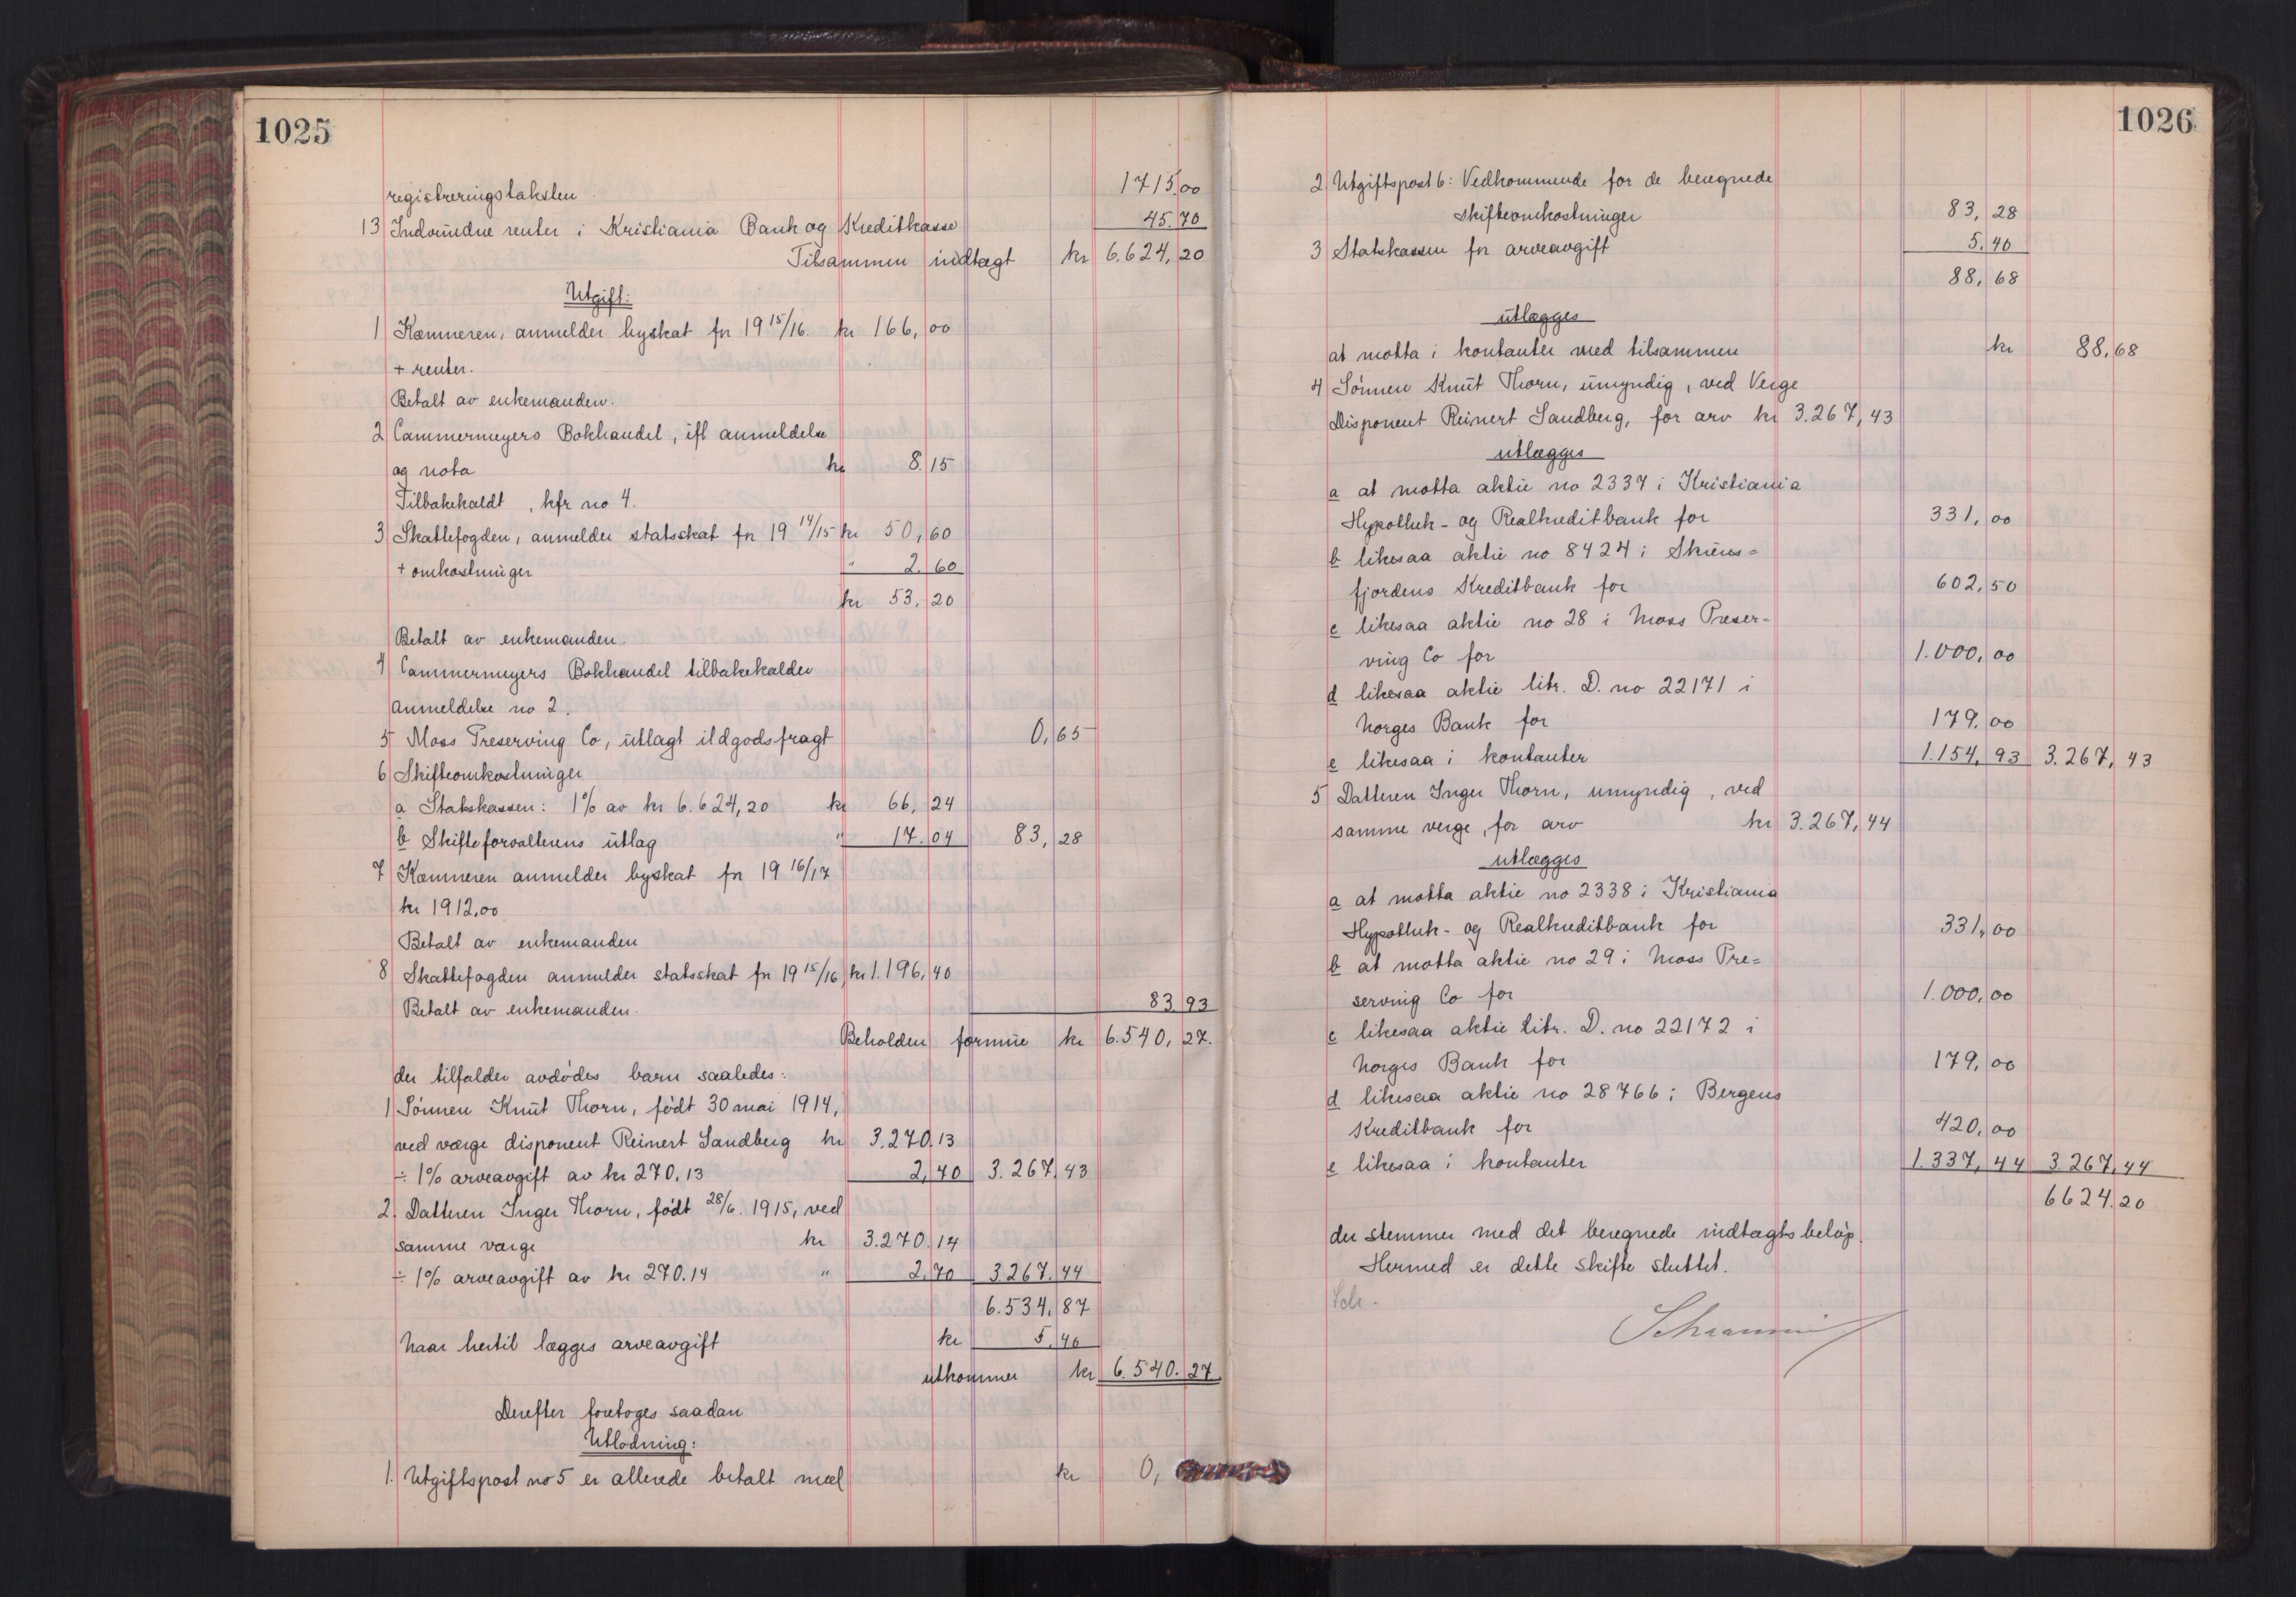 1025
registreringstaksten 1715.00
13 Indvundne renter i Kristiania Bank og Kreditkasse 45.70
Tilsammen indtægt kr 6.624,20
Utgift:
1 Kæmneren, anmelder byskat for 19 15/16. kr 166,00
+ renter.
Betalt av enkemanden.
2 Cammermeyers Bokhandel, ifl anmeldelse
og nota kr 8.15
Tilbakekaldt, kfr no 4.
3 Skattefogden, anmelder statsskat for 19 14/15 kr 50,60
+ omkostninger " 2.60
kr 53,20
Betalt av enkemanden.
4 Cammermeyers Bokhandel tilbakekalder
anmeldelse no 2.
5 Moss Preserving Co, utlagt ildgodsfragt 0,65
6 Skifteomkostninger
a Statskassen: 1% av kr 6.624,20 kr 66,24
b Skifteforvalterens utlag " 17.04 83,28
7 Kæmneren anmelder byskat for 19 16/17
kr 1912,00
Betalt av enkemanden
8 Skattefogden anmelder statsskat for 19 15/16, kr 1.196,40
Betalt av enkemanden. 83.93
Beholden formue kr 6.540,27.
der tilfalder avdødes barn saaledes:
1 Sønnen Knut Thorn, født 30 mai 1914,
ved værge disponent Reinert Sandberg kr 3.270.13
÷ 1% arveavgift av kr 270,13 2,70 3.267,43
2. Datteren Inger Thorn, født 28/6. 1915, ved
samme værge kr 3.270.14
÷ 1% arveavgift av kr 270.14 " 2,70 3.267,44
6.534,87
Naar hertil lægges arveavgift kr 5,40
utkommer kr 6.540.27
Derefter foretoges saadan
Utlodning:
1. Utgiftspost no 5 er allerede betalt med kr 0,
1026
2 Utgiftspost 6: Vedkommende for de beregnede
skifteomkostninger 83,28
3 Statskassen for arveavgift 5.40
88,68
utlægges
at motta i kontanter med tilsammen kr 88,68
4 Sønnen Knut Thorn, umyndig, ved Verge
Disponent Reinert Sandberg, for arv kr 3.267,43
utlægges
a at motta aktie no 2337 i Kristiania
Hypothek- og Realkreditbank for 331,00
b likesaa aktie no 8424 i Skiens=
fjordens Kreditbank for 602,50
c likesaa aktie no 28 i Moss Preser-
ving Co for 1.000,00
d likesaa aktie litr. D. no 22171 i
Norges Bank for 179.00
e likesaa i kontanter 1.154,93 3.267,43
5 Datteren Inger Thorn, umyndig, ved
samme verge, for arv kr 3.267,44
utlægges
a at motta aktie no 2338 i Kristiania
Hypothek- og Realkreditbank for 331,00
b at motta aktie no 29 i Moss Pre=
serving Co for 1.000,00
c likesaa aktie litr. D. no 22172 i
Norges Bank for 179,00
d likesaa aktie no 28766 i Bergens
Kreditbank for 420,00
e likesaa i kontanter 1.337,44 3.267,44
6624.20
der stemmer med det beregnede indtægtsbeløp.
Hermed er dette skifte sluttet.
Sch.